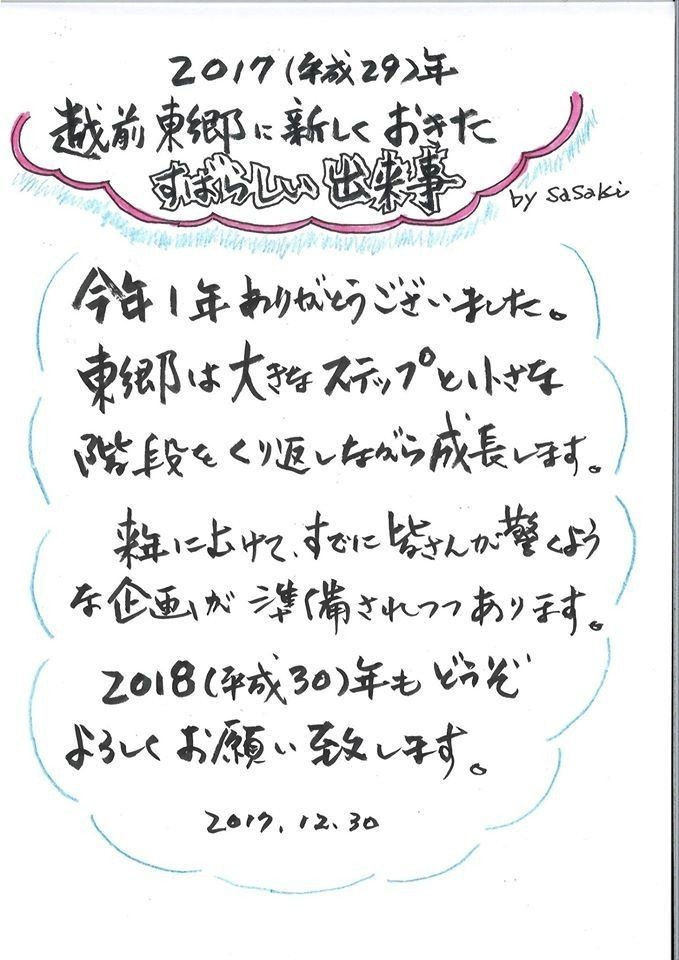 2017(平成29)年
越前東郷に新しくおきた
すばらしい出来事
by SaSaki
今年1年ありがとうございました。
東郷は大きなステップと小さな
階段をくり返しながら成長します。
来年に向けて、すでに皆さんが驚くよう
な企画が準備されつつあります。
2018(平成30)年もどうぞ
よろしくお願い致します。
2017.12.30